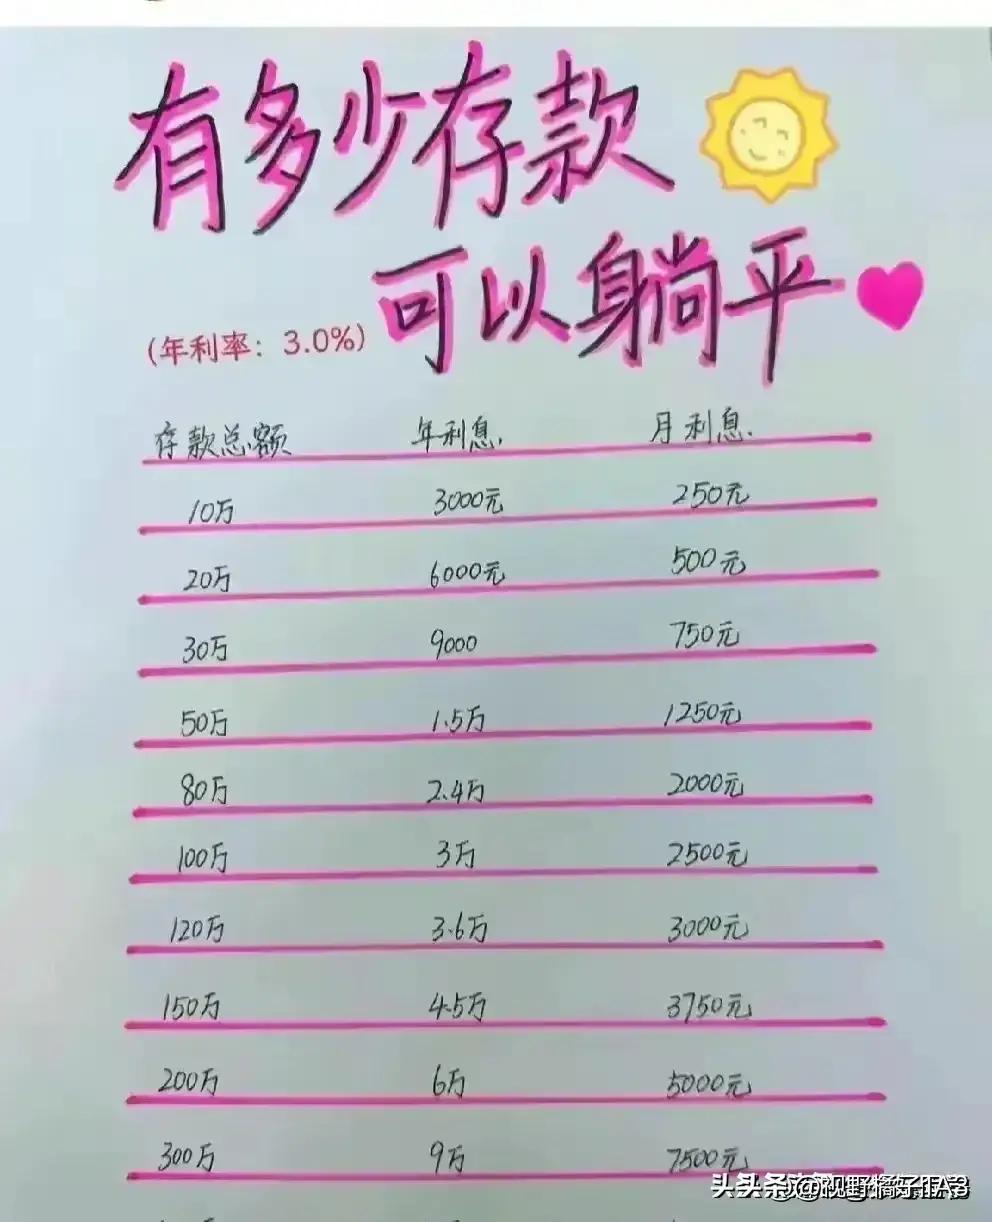 有多少存款
可以躺平
(年利率：3.0%)
存款总额 年利息. 月利息.
10万 3000元 250元
20万 6000元 500元
30万 9000 750元
50万 1.5万 1250元
80万 2.4万 2000元
100万 3万 2500元
120万 3.6万 3000元
150万 4.5万 3750元
200万 6万 5000元
300万 9万 7500元
头条 @视野橘子